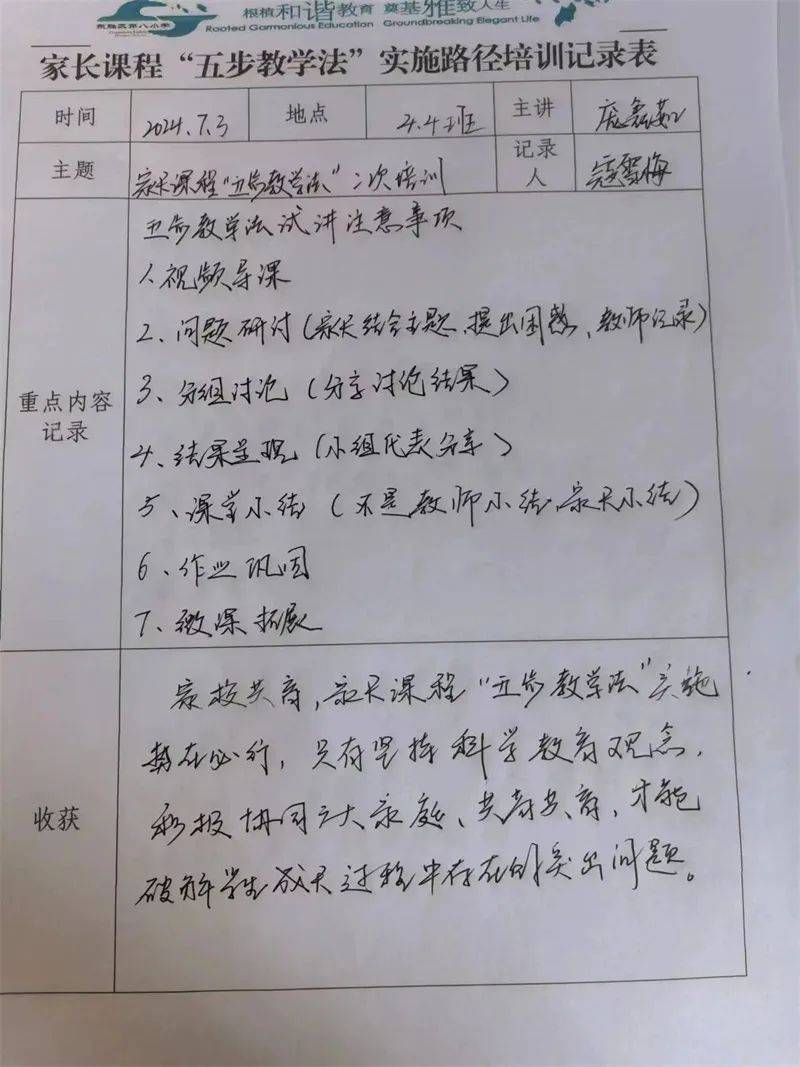 根植和谐教育 奠基雅致人生
Rooted Garmonious Education Groundbreaking Elegant Life
家长课程“五步教学法”实施路径培训记录表
时间 2024.7.3 地点 4.4班 主讲
主题 家长课程“五步教学法”二次培训 记录人
重点内容记录
五步教学法试讲注意事项
1、视频导课
2、问题研讨(家长结合主题、提出困惑、教师记录)
3、分组讨论(分享讨论结果)
4、结果呈现(小组代表分享)
5、课堂小结(不是教师小结、家长小结)
6、作业巩固
7、微课拓展
收获
家校共育,家长课程“五步教学法”实施
势在必行,只有坚持科学教育观念,
积极协同广大家庭、共育共育,才能
破解学生成长过程中存在的突出问题。